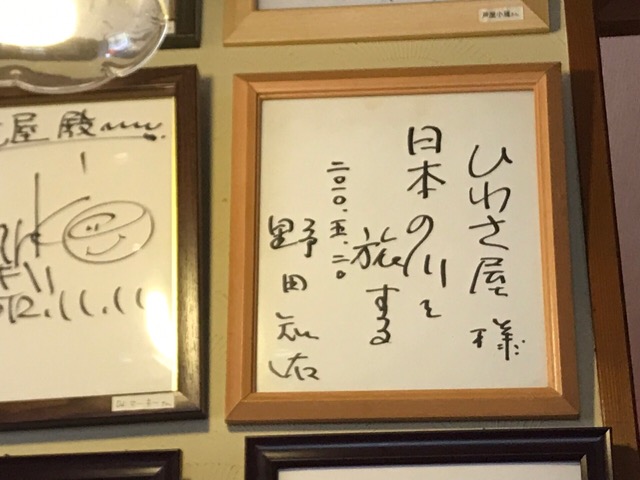 ひわさ屋 様
日本の川を
旅する
二〇一〇.五.二〇
野田知佑
屋 殿
12.11.11
芦屋小雁さん